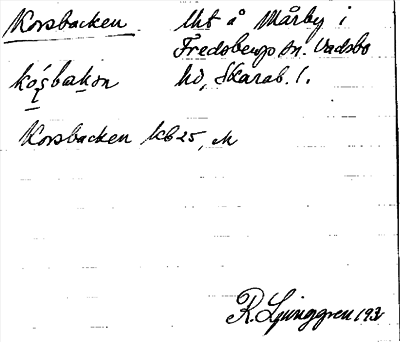 Korsbacken Uht å Mårby i
Fredsbergs sn. Vadsbo
kósbakon hd, Skarab. l.
Korsbacken KB 25, M
R. Ljunggren 193